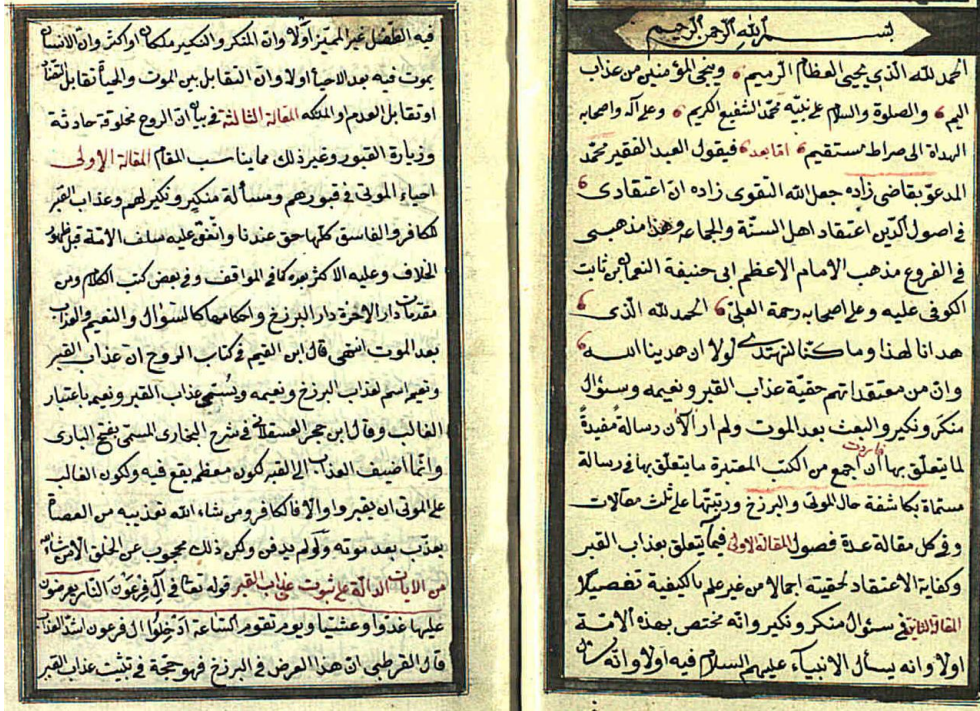 بسم الله الرحمن الرحيم
الحمد لله الذي يحيى العظام الرميم وينجى المؤمنين من عذاب
اليم والصلوة والسلام على نبيه محمد الشفيع الكريم وعلى آله واصحابه
الهداة الى صراط مستقيم اما بعد فيقول العبد الفقير محمد
المدعو بقاضى زاده جعل الله التقوى زاده ان اعتقادى
فى اصول الدين اعتقاد اهل السنة والجماعه وهذا مذهبى
فى الفروع مذهب الامام الاعظم ابى حنيفة النعمان بن ثابت
الكوفى عليه وعلى اصحابه رحمة العلى الحمد لله الذى
هدانا لهذا وما كنا لنهتدى لولا ان هدينا الله
وان من معتقداتهم حقية عذاب القبر ونعيمه وسئوال
منكر ونكير والبعث بعد الموت ولم ار الآن رسالة مفيدة
لما يتعلق بها ان اجمع من الكتب المعتبرة ما يتعلق بها فى رسالة
مسماة بكاشفة حال الموتى والبرزخ ورتبتها على ثلث مقالات
وفى كل مقالة عدة فصول المقالة الاولى فيما يتعلق بعذاب القبر
وكفاية الاعتقاد لحقيته اجمالا من غير علم بالكيفية تفصيلا
المقالة الثانية فى سئوال منكر ونكير وانه مختص بهذه الامة
اولا وانه يسأل الانبياء عليهم السلام فيه اولا وانه
فيه الطفل غير المميز اولا وان المنكر والنكير ملكان او اكثر وان الانسان
يموت فيه بعد الاحياء اولا وان التقابل بين الموت والحيأ تقابل التضاد
او تقابل العدم او الملكه المقالة الثالثة فى بيان ان الروح مخلوقة حادثة
وزيارة القبور وغير ذلك مما يناسب المقام المقالة الاولى
احياء الموتى فى قبورهم ومسألة منكر ونكير لهم وعذاب القبر
للكافر والفاسق كلها حق عندنا واتفق عليه سلف الامة قبل ظهور
الخلاف وعليه الاكثر بعده كما فى المواقف وفى بعض كتب الكلام ومن
مقدمات دار الاخرة دار البرزخ واحكامها كالسئوال والنعيم والعذاب
بعد الموت انتهى قال ابن القيم فى كتاب الروح ان عذاب القبر
ونعيم اسم لعذاب البرزخ ونعيمه ويسمى عذاب القبر ونعيم باعتبار
الغالب وقال ابن حجر العسقلانى فى شرح البخارى المسمى بفتح البارى
وانما اضيف العذاب الى القبر كون معظم يقع فيه ولكون الغالب
على الموتى ان يقبروا والا فالكافر ومن شاء الله تعذيبه من العصاة
يعذب بعد موته ولو لم يدفن ولكن ذلك محجوب عن الخلق الا من شاء الله
من الآيات الدالة على ثبوت عذاب القبر قوله تعا فى آل فرعون النار يعرضون
عليها غدوا وعشيا ويوم تقوم الساعة ادخلوا ال فرعون اشد العذاب
قال القرطبى ان هذا العرض فى البرزخ فهو حجة فى تثبت عذاب القبر